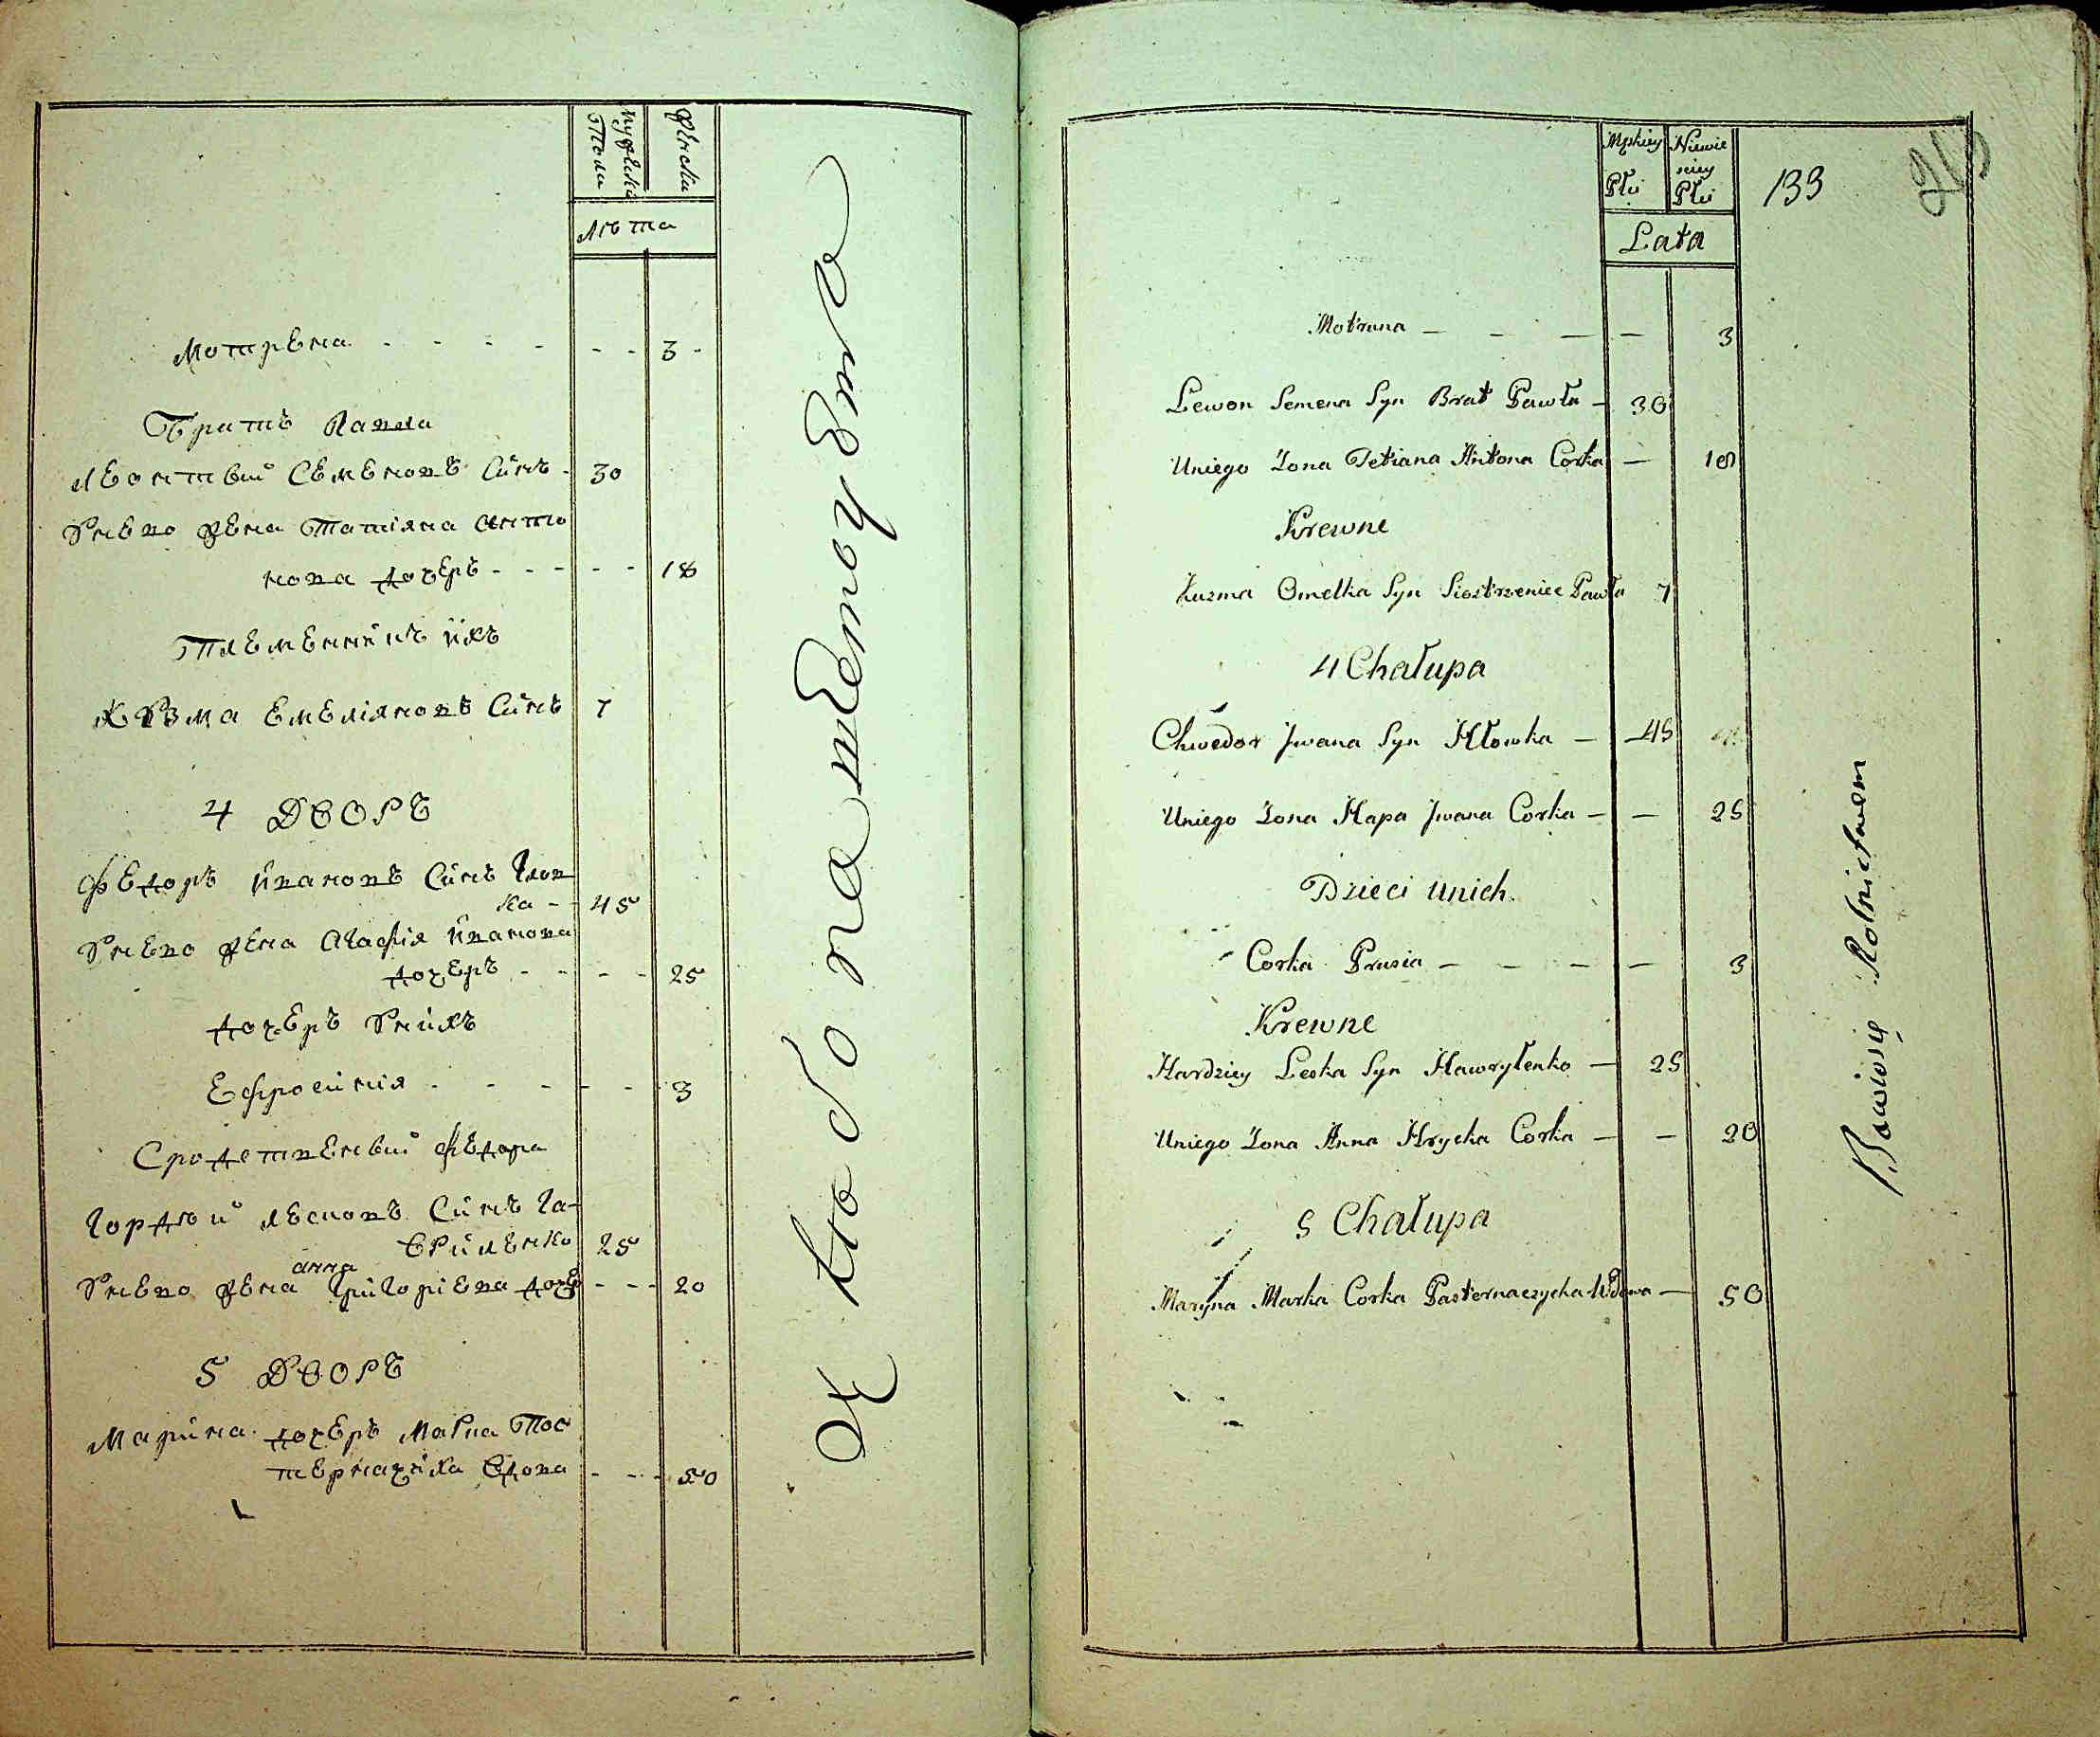 мужеска
пола
женска
Лѣта
Мотрена - - - - - - 3 -
Братъ Павла
Леонтьий Семеновъ Синъ - 30
У нево жена Татіяна Анто
нова дочеръ - - - - - 18
Племенникъ ихъ
Кузма Емеліяновъ Синъ 7
4 ДВОРЪ
Федоръ Ивановъ Синъ Глов
ка - - 45
У нево жена Агафія Иванова
дочеръ - - - - 25
дочеръ у нихъ
Ефросинія - - - - - 3
Сродственьий Федора
Гордѣй Лесковъ Синъ Га-
врйленко 25
анна
У нево жена Григоріева дочер - - - 20
5 ДВОРЪ
Марина дочеръ Марка Пос
терначиха вдова - - - 50
Męskiey
Płci
Niewie
sciey
Płci
133
Lata
Motruna — - — — 3
Lewon Semena Syn Brat Pawła — 30
Uniego Żona Tetiana Antona Corka — 18
Krewne
Kuzma Omelka Syn Siostrzeniec Pawła 7
4 Chałupa
Chwedor Jwana Syn Hłowka — 45
Uniego Żona Hapa Jwana Corka — — 25
Dzieci unich.
Corka Prusia — — — — 3
Krewne
Hardziey Leska Syn Hawryłenko — 25
Uniego Żona Anna Hrycka Corka — — 20
5 Chałupa
Maryna Marka Corka Pasternaczycha Wdowa — 50
Bawiwsię Rolnictwem